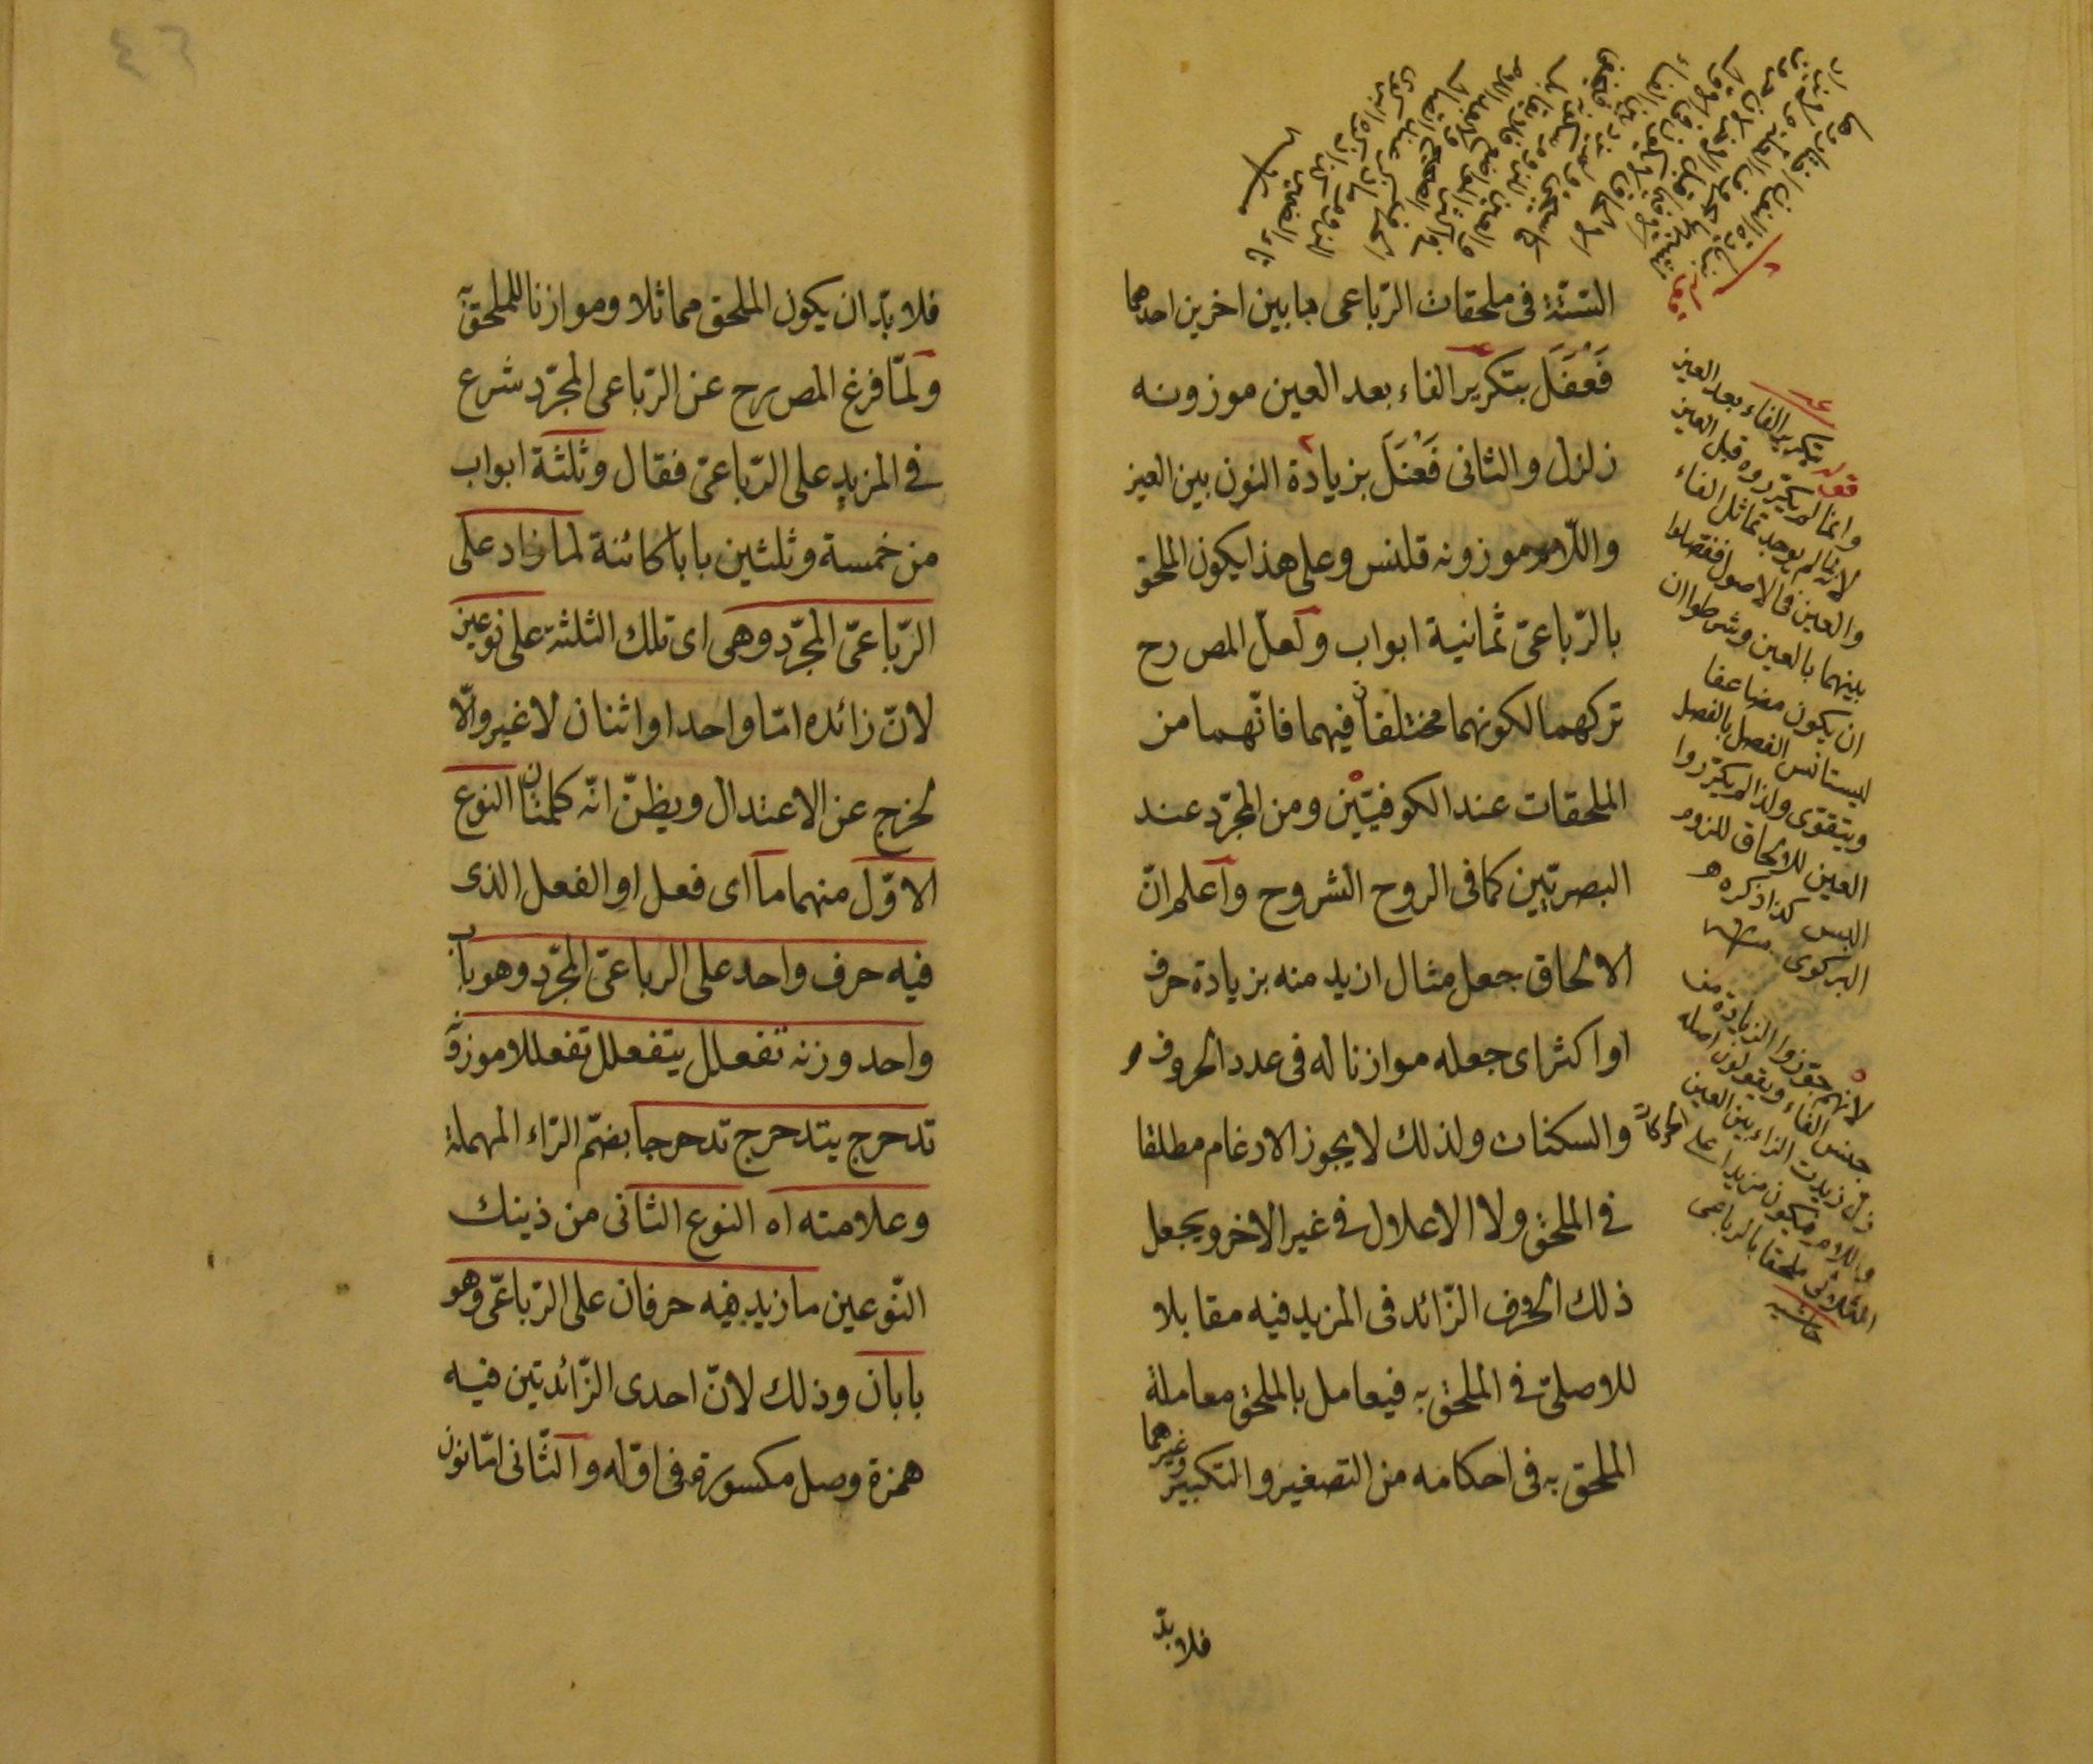 الستة فى ملحقات الرّباعى ببابين اخرين احدهما
فَعْفَلَ بتكرير الفاء بعد العين موزونه
زلزل والثانى فَعْنَلَ بزيادة النون بين العين
واللّام موزونه قلنس وعلى هذا يكون الملحق
بالرّباعىّ ثمانية ابواب ولعلّ المص رح
تركهما لكونهما مختلفا فيهما فانّهما من
الملحقات عند الكوفيّين ومن المجرّد عند
البصريّين كما فى الروح الشروح واعلم انّ
الالحاق جعل مثال ازيد منه بزيادة حرف
او اكثر اى جعله موازنا له فى عدد الحروف و
الحركات والسكنات ولذلك لا يجوز الادغام مطلقا
فى الملحق ولا الاعلال فى غير الاخر ويجعل
ذلك الحرف الزّائد فى المزيد فيه مقابلا
للاصلىّ فى الملحق به فيعامل بالملحق معاملة
الملحق به فى احكامه من التصغير والتكبير وغيرهما
فلا بدّ
قوله بتكرير الفاء بعد العين
وانما لم يكرّروه قبل العين
لانّه لم يوجد تماثل الفاء
والعين فى الاصول ففصلوا
بينهما بالعين وشرطوا ان
ان يكون مضاعفا
ليستانس الفصل بالفصل
ويتقوّى ولذا لم يكرّروا
العين للالحاق للزوم
اللبس كذا ذكره
البركوى منه
لانهم جوّزوا الزيادة من
جنس الفاء ويقولون اصله
زل زيدت الزاء بين العين
واللام فيكون مزيدا على
الثلاثى ملحقا بالرباعى
حاشيه
٤٦
فلا بدّ ان يكون الملحق مماثلا وموازنا للملحق به
ولمّا فرغ المص رح عن الرّباعى المجرّد شرع
فى المزيد على الرّباعىّ فقال وثلثة ابواب
من خمسة وثلثين بابا كائنة لما زاد على
الرّباعىّ المجرّد وهى اى تلك الثلثة على نوعين
لانّ زائده امّا واحد او اثنان لا غير والّا
لخرج عن الاعتدال ويظنّ انّه كلمتان النوع
الاوّل منهما ما اى فعل او الفعل الذى
فيه حرف واحد على الرباعىّ المجرّد وهو باب
واحد وزنه تفعلل يتفعلل تفعللا موزونه
تدحرج يتدحرج تدحرجا بضمّ الرّاء المهملة
وعلامته اه النوع الثانى من ذينك
النّوعين ما زيد فيه حرفان على الرّباعىّ وهو
بابان وذلك لانّ احدى الزّائدتين فيه
همزة وصل مكسورة فى اوّله والثّانى امّا نون